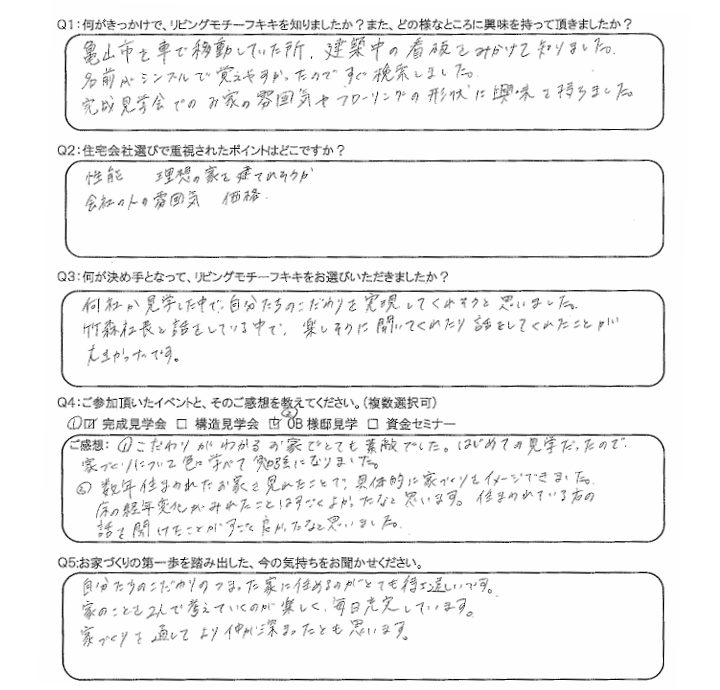 Q1：何がきっかけで、リビングモチーフキキを知りましたか？また、どの様なところに興味を持って頂きましたか？
亀山市を車で移動していた所、建築中の看板をみかけて知りました。
名前がシンプルで覚えやすかったのですぐ検索しました。
完成見学会でのお家の雰囲気やフローリングの形状に興味を持ちました。
Q2：住宅会社選びで重視されたポイントはどこですか？
性能　理想の家を建てれそうか
会社の人の雰囲気　価格
Q3：何が決め手となって、リビングモチーフキキをお選びいただきましたか？
何社か見学した中で、自分たちのこだわりを実現してくれそうと思いました。
竹森社長と話をしている中で、楽しそうに聞いてくれたり話をしてくれたことが
大きかったです。
Q4：ご参加頂いたイベントと、そのご感想を教えてください。（複数選択可）
①☑ 完成見学会 □ 構造見学会 ②☑ OB 様邸見学 □ 資金セミナー
ご感想：①こだわりがわかるお家でとても素敵でした。はじめての見学だったので、
家づくりについて色々学べて勉強になりました。
② 数年住まわれたお家を見れたことで、具体的に家づくりをイメージできました。
床の経年変化がみれたことはすごくよかったなと思います。住まわれている方の
話を聞けたことがすごく良かったなと思いました。
Q5：お家づくりの第一歩を踏み出した、今の気持ちをお聞かせください。
自分たちのこだわりのつまった家に住めるのがとても待ち遠しいです。
家のことを2人で考えていくのが楽しく、毎日充実しています。
家づくりを通してより仲が深まったとも思います。